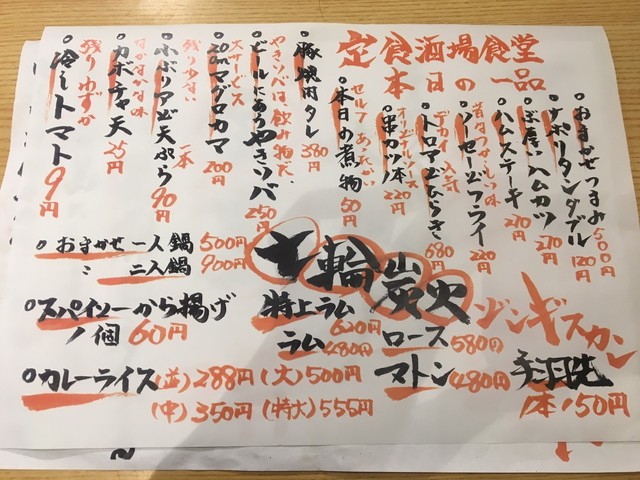 定食酒場食堂
本日の一品
おまかせつまみ 500円
ナポリタンダブル 120円
ぶ厚いハムカツ 270円
ハムステーキ 270円
昔なつかしい味
ソーセージフライ 220円
デカイ 人気
680円
串カツ1本 220円
セルフ あたたかい
本日の煮物 50円
豚焼肉タレ 380円
やきソバは、飲み物だ、
ビールにあうやきソバ 250円
スサービス
マグロカマ 200円
残り少ない
天ぷら 一本 90円
カボチャ天 25円
残りわずか
冷しトマト 9円
おまかせ一人鍋 500円
〃 二人鍋 900円
スパイシーから揚げ
1個 60円
カレーライス(並)288円(大)500円
(中)350円(特大)555円
七輪炭火
ジンギスカン
特上ラム 620円
ラム 480円
ロース 580円
マトン 480円
手羽先
1本150円